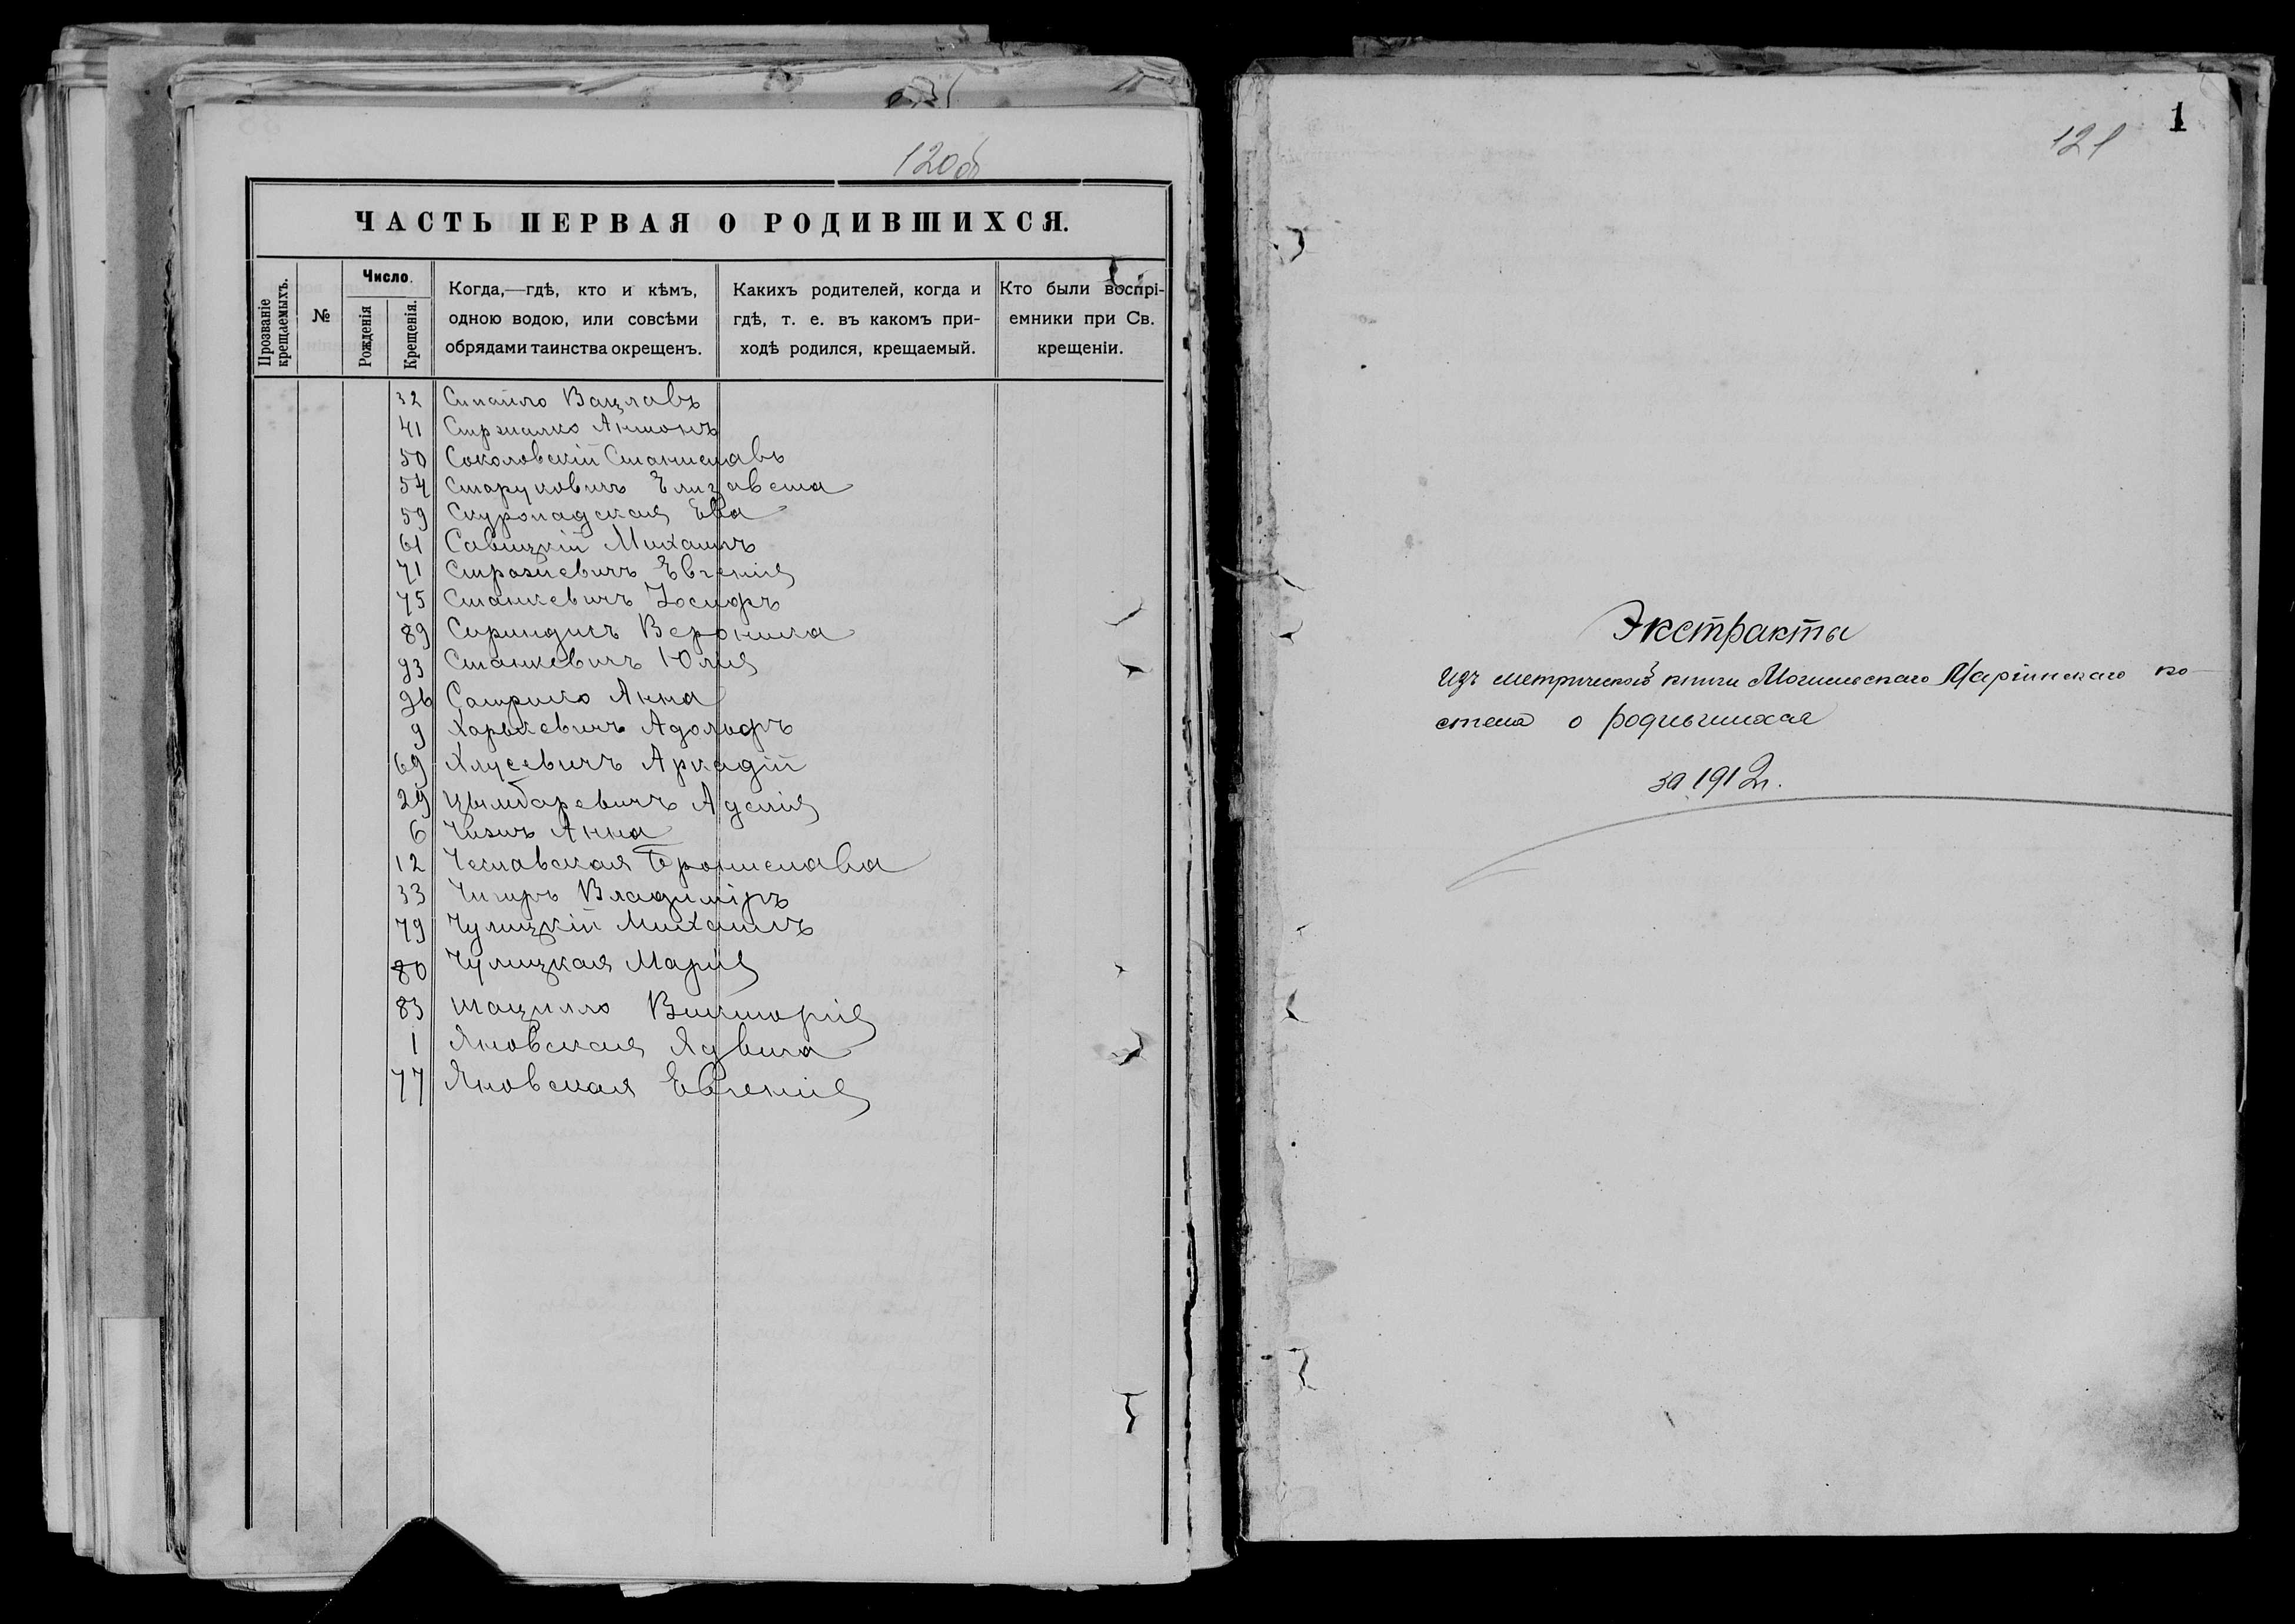 120об
ЧАСТЬ ПЕРВАЯ О РОДИВШИХСЯ.
Прозваніе крещаемыхъ.
№
Число.
Рожденія
Крещенія.
Когда,—гдѣ, кто и кѣмъ,
одною водою, или совсѣми
обрядами таинства окрещенъ.
Какихъ родителей, когда и
гдѣ, т. е. въ какомъ при-
ходѣ родился, крещаемый.
Кто были воспрі-
емники при Св.
крещеніи.
32 Вацлавъ
41 Антонъ
50 Соколовскій Станиславъ
54 Старуковичъ Елизавета
59 Скуропадская Ева
61 Савицкій Михаилъ
71 Евгенія
75 Станкевичъ Іосифъ
89 Вероника
93 Станкевичъ Юлія
96 Анна
9 Харкевичъ Адольфъ
69 Хлусевичъ Аркадій
29 Цымбаревичъ Аделія
6 Чизъ Анна
12 Чеславская Брониславa
33 Чигиръ Владиміръ
79 Чулицкій Михаилъ
80 Чулицкая Марія
83 Шацилло Викторія
1 Яновская Ядвига
77 Яновская Евгенія
1
121
Экстракты
изъ метрической книги Могилевскаго Маріинскаго ко-
стела о родившихся
за 1912 г.